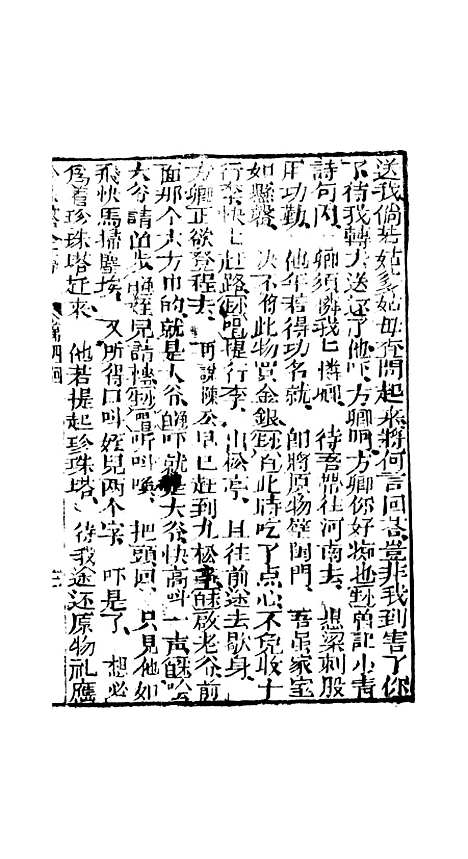 送我倘若姑爹姑母查問起來將何言回荅豈非我到害了你
了待我轉去送还了他吓方卿吓方卿你好痴也
詩句內、卿須憐我我憐卿、待吾帶往河南去、懸梁刺股
用功勤、他年若得功名就、即將原物壁閨門、吾虽家室
如懸磬、决不將此物買金銀此時吃了点心不免收十
行李快快赶路唱提行李、出松亭、且往前途去歇身、
方卿正欲登程去、再說陳公早已赶到九松亭啟老爷前
面那个大方巾的就是大爷吓就是大爷快高叫一声
大爷請留步姪兒請轉唱听叫喚、把頭回、只見他如
飛快馬掃塵埃、又听得口叫姪兒兩个字、吓是了、想必
爲着珍珠塔赶來他若提起珍珠塔、待我送还原物礼應
全 第四回